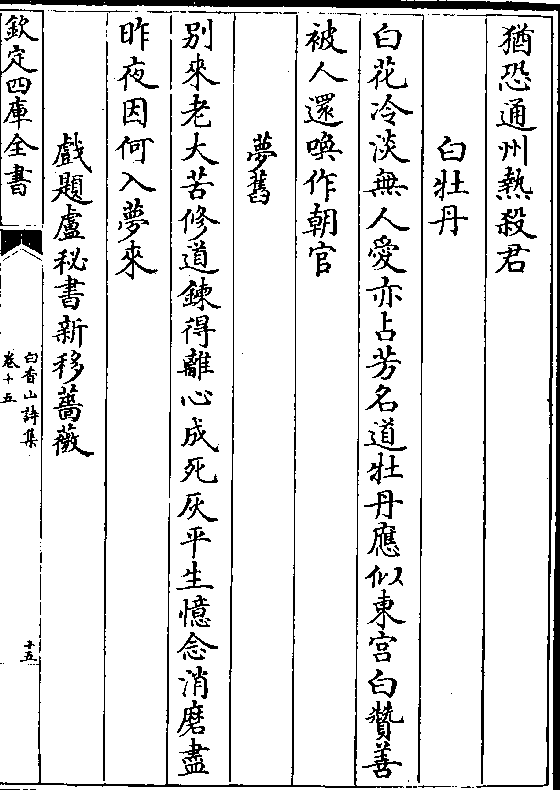 猶恐通州熱殺君
白牡丹
白花冷淡無人愛亦占芳名道牡丹應似東宮白贊善
被人還喚作朝官
夢舊
別來老大苦修道鍊得離心成死灰平生憶念消磨盡
昨夜因何入夢來
戲題盧秘書新移薔薇
欽定四庫全書
白香山詩集
卷十五
十五